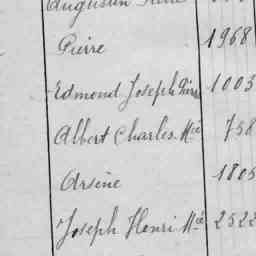 Augustin
Pierre 1968
Edmond Joseph Pierre 1003
Albert Charles Mie 758
Arsène 1805
Joseph Henri Mie 2522